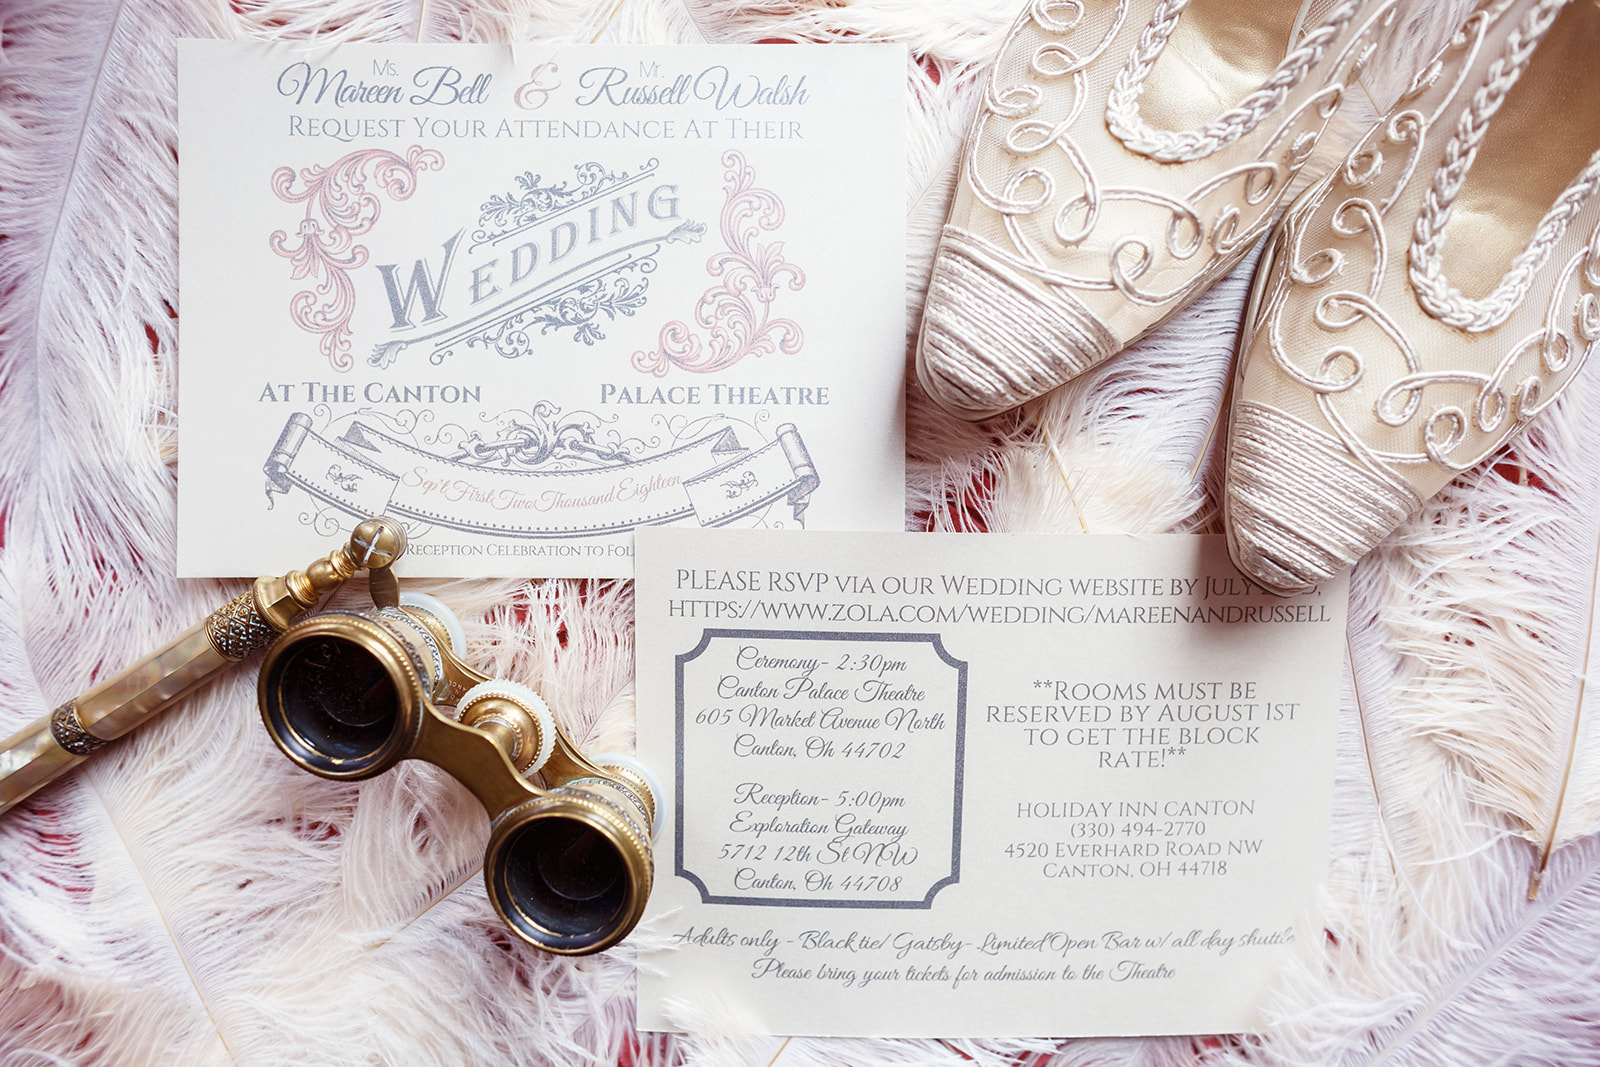 Ms. Mr.
Mareen Bell & Russell Walsh
Request Your Attendance At Their
Wedding
At The Canton Palace Theatre
Sep't First, Two Thousand Eighteen
Reception Celebration to
PLEASE RSVP VIA OUR WEDDING WEBSITE BY JULY
HTTPS://WWW.ZOLA.COM/WEDDING/MAREENANDRUSSELL
Ceremony- 2:30pm
Canton Palace Theatre
605 Market Avenue North
Canton, Oh 44702
Reception- 5:00pm
Exploration Gateway
5712 12th St NW
Canton, Oh 44708
**Rooms must be
reserved by August 1st
to get the block
rate!**
Holiday Inn Canton
(330) 494-2770
4520 Everhard Road NW
Canton, OH 44718
Adults only - Black tie/ Gatsby- Limited Open Bar w/ all day shuttle
Please bring your tickets for admission to the Theatre